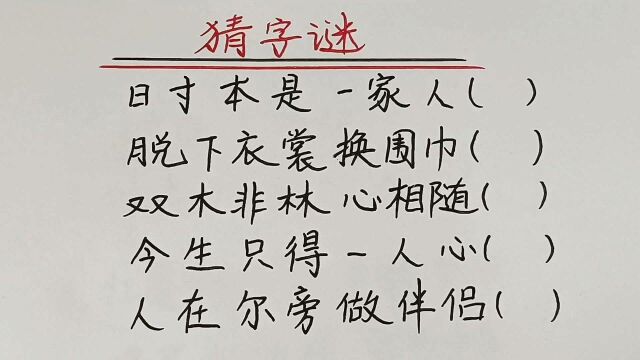 猜字谜
日寸本是一家人( )
脱下衣裳换围巾( )
双木非林心相随( )
今生只得一人心( )
人在尔旁做伴侣( )